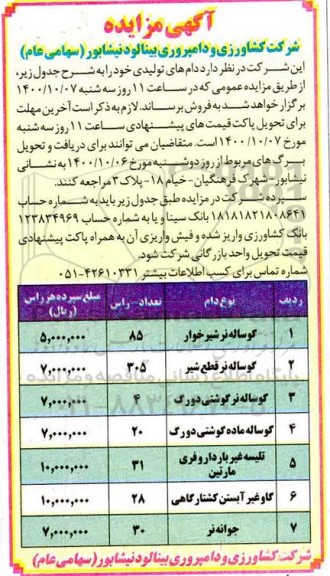 آگهی مزایده
شرکت کشاورزی و دامپروری بینالود نیشابور (سهامی عام)
این شرکت در نظر دارد دام های تولیدی خود را به شرح جدول زیر،
از طریق مزایده عمومی که در ساعت ۱۱ روز سه شنبه ۱۴۰۰/۱۰/۰۷
برگزار خواهد شد به فروش برساند. لازم به ذکر است آخرین مهلت
برای تحویل پاکت قیمت های پیشنهادی ساعت ۱۱ روز سه شنبه
مورخ ۱۴۰۰/۱۰/۰۷ است. متقاضیان می توانند برای دریافت و تحویل
برگ های مربوط از روز دوشنبه مورخ ۱۴۰۰/۱۰/۰۶ به نشانی
نیشابور - شهرک فرهنگیان - خیام ۱۸ - پلاک ۳ مراجعه کنند.
سپرده شرکت در مزایده طبق جدول زیر باید به شماره حساب
۱۸۱۸۱۸۲۱۸۰۸۶۴۱ بانک سینا و یا به شماره حساب ۱۲۳۸۳۴۹۶۹
بانک کشاورزی واریز شده و فیش واریزی آن به همراه پاکت پیشنهادی
قیمت تحویل واحد بازرگانی شرکت شود.
شماره تماس برای کسب اطلاعات بیشتر ۴۲۶۱۰۳۳۱-۰۵۱
ردیف نوع دام تعداد - راس مبلغ سپرده هر راس (ریال)
۱ گوساله نر شیرخوار ۸۵ ۵,۰۰۰,۰۰۰
۲ گوساله نر قطع شیر ۳۰۵ ۷,۰۰۰,۰۰۰
۳ گوساله نر گوشتی دورگ ۴ ۷,۰۰۰,۰۰۰
۴ گوساله ماده گوشتی دورگ ۲۰ ۷,۰۰۰,۰۰۰
۵ تلیسه غیر باردار و فری مارتین ۳۱ ۱۰,۰۰۰,۰۰۰
۶ گاو غیر آبستن کشتارگاهی ۲۸ ۱۰,۰۰۰,۰۰۰
۷ جوانه نر ۳۰ ۷,۰۰۰,۰۰۰
شرکت کشاورزی و دامپروری بینالود نیشابور (سهامی عام)